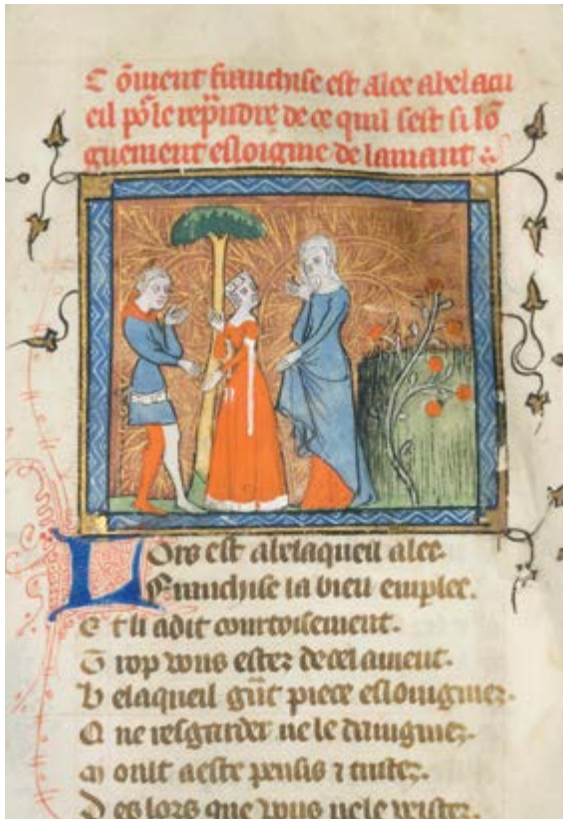 C õment franchise est alee abelacu
eil põ le repñdre de ce quil sest si lõ
guement esloigne de lamant
L Ors est abelaqueil alee.
F ranchise la bien emplee.
E t li a dit courtoisement.
T rop vous estez de cel ament.
B elaqueil gñt piece esloingniez.
Q ne resgarder ne le daingniez.
M oult a este pensis ⁊ tristez.
D es lors que vous ne le veistez.